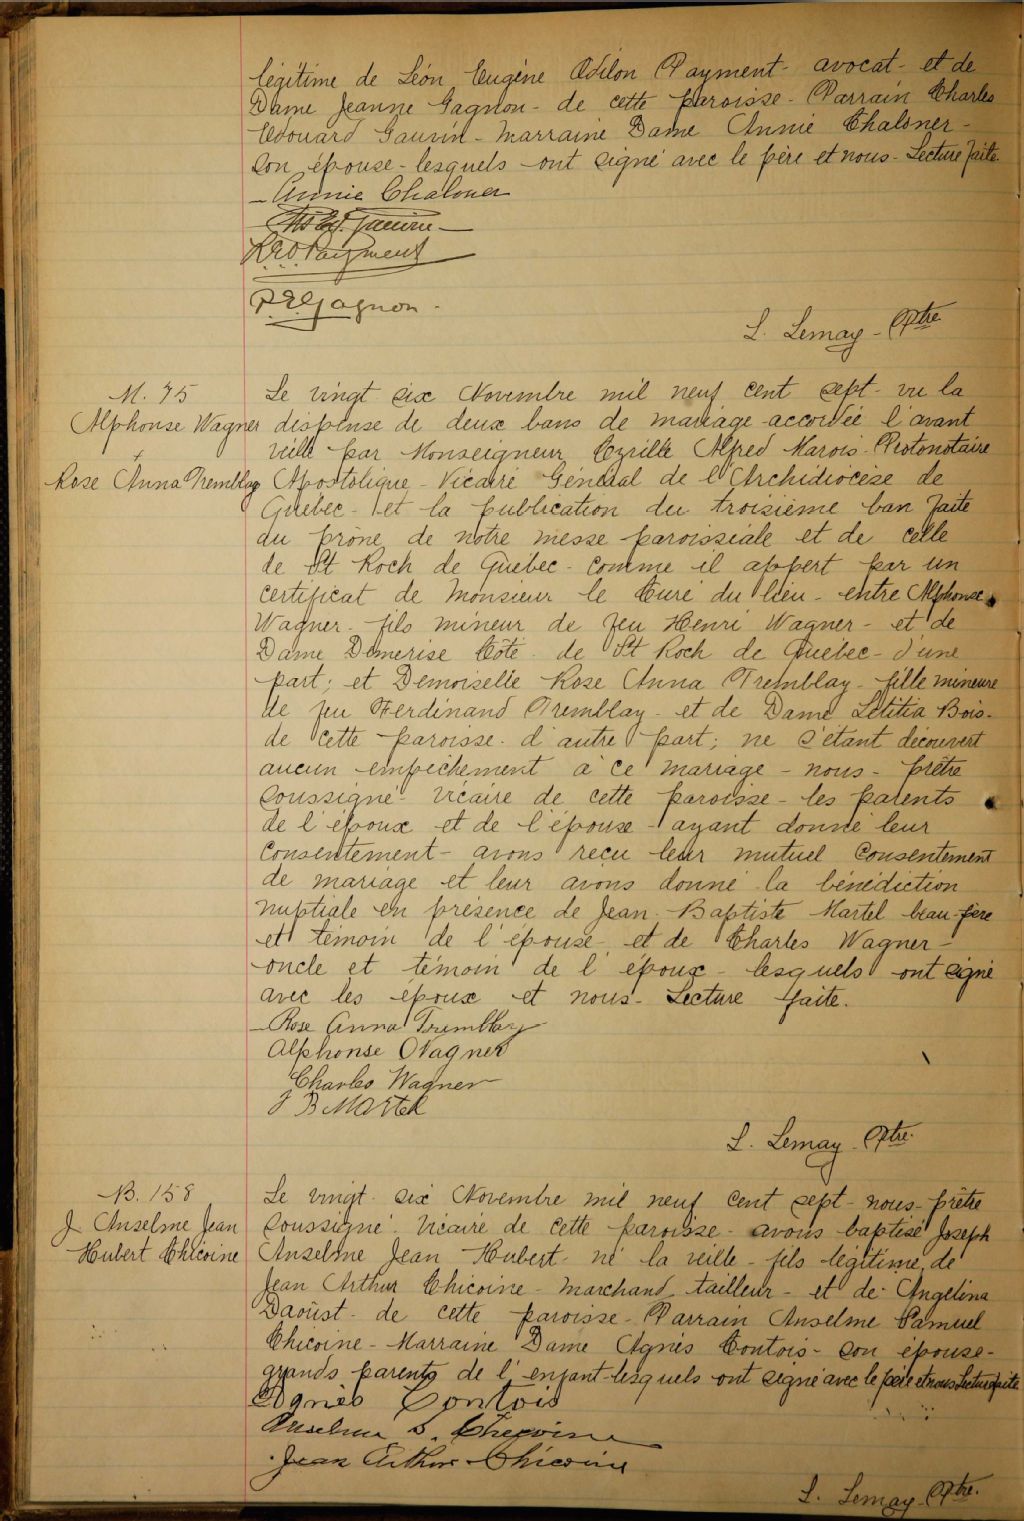 légitime de Léon Eugène Odilon Payment - avocat - et de
Dame Jeanne Gagnon - de cette paroisse - Parrain Charles
Edouard Gauvin - Marraine Dame Annie Chaloner -
son épouse - lesquels ont signé avec le père et nous - Lecture faite.
Annie Chaloner
Chs Ed. Gauvin
L E O Payment
P. E. Gagnon.
L. Lemay - Ptre
M. 75
Alphonse Wagner
Rose Anna Tremblay
Le vingt six Novembre mil neuf cent sept - vu la
dispense de deux bans de mariage accordée l'avant
veille par Monseigneur Cyrille Alfred Marois - Protonotaire
Apostolique - Vicaire Général de l'Archidiocèse de
Québec - et la publication du troisième ban faite
au prône de notre messe paroissiale et de celle
de St Roch de Québec - comme il appert par un
certificat de Monsieur le Curé du lieu - entre Alphonse
Wagner - fils mineur de feu Henri Wagner - et de
Dame Démerise Côté - de St Roch de Québec - d'une
part; et Demoiselle Rose Anna Tremblay - fille mineure
de feu Ferdinand Tremblay - et de Dame Létitia Bois -
de cette paroisse - d'autre part; ne s'étant découvert
aucun empêchement à ce mariage - nous - prêtre
soussigné - vicaire de cette paroisse - les parents
de l'époux et de l'épouse - ayant donné leur
consentement - avons reçu leur mutuel consentement
de mariage et leur avons donné la bénédiction
nuptiale en présence de Jean Baptiste Martel beau-père
et témoin de l'épouse - et de Charles Wagner -
oncle et témoin de l'époux - lesquels ont signé
avec les époux et nous - Lecture faite.
Rose Anna Tremblay
Alphonse Wagner
Charles Wagner
J B Martel
L. Lemay - Ptre.
B. 158
J. Anselme Jean
Hubert Chicoine
Le vingt six Novembre mil neuf cent sept - nous - prêtre
soussigné - vicaire de cette paroisse - avons baptisé Joseph
Anselme Jean Hubert - né la veille - fils légitime de
Jean Arthur Chicoine - marchand tailleur - et de Angélina
Daoüst - de cette paroisse - Parrain Anselme Samuel
Chicoine - Marraine Dame Agnès Contois - son épouse -
grands parents de l'enfant - lesquels ont signé avec le père et nous Lecture faite
Agnès Contois
Anselme S. Chicoine
Jean Arthur Chicoine
L. Lemay - Ptre.